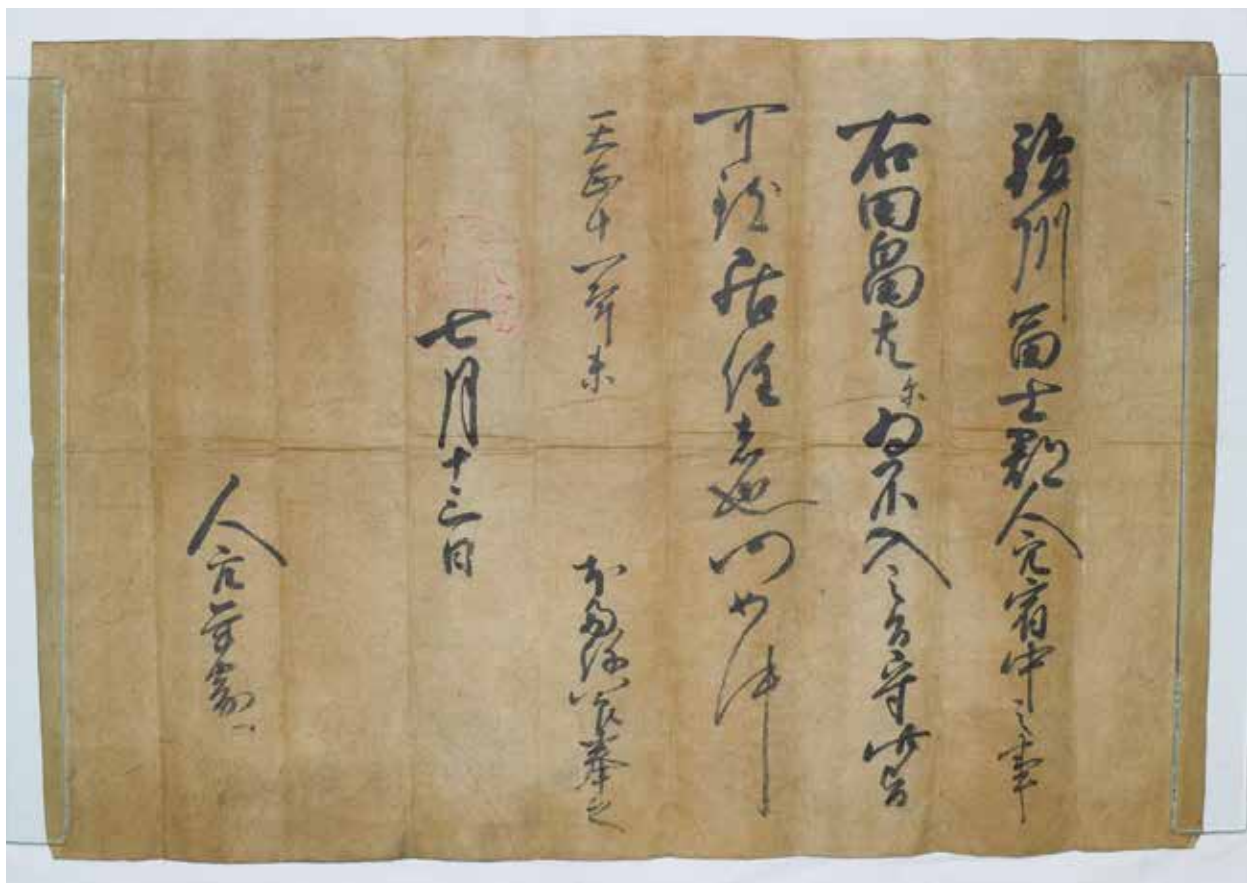 駿州冨士郡人穴宿中之事
右田畠尤為不入之間守此旨
可致居住者也仍如件
天正十一年未
七月十三日
本多弥八郎奉之
人穴